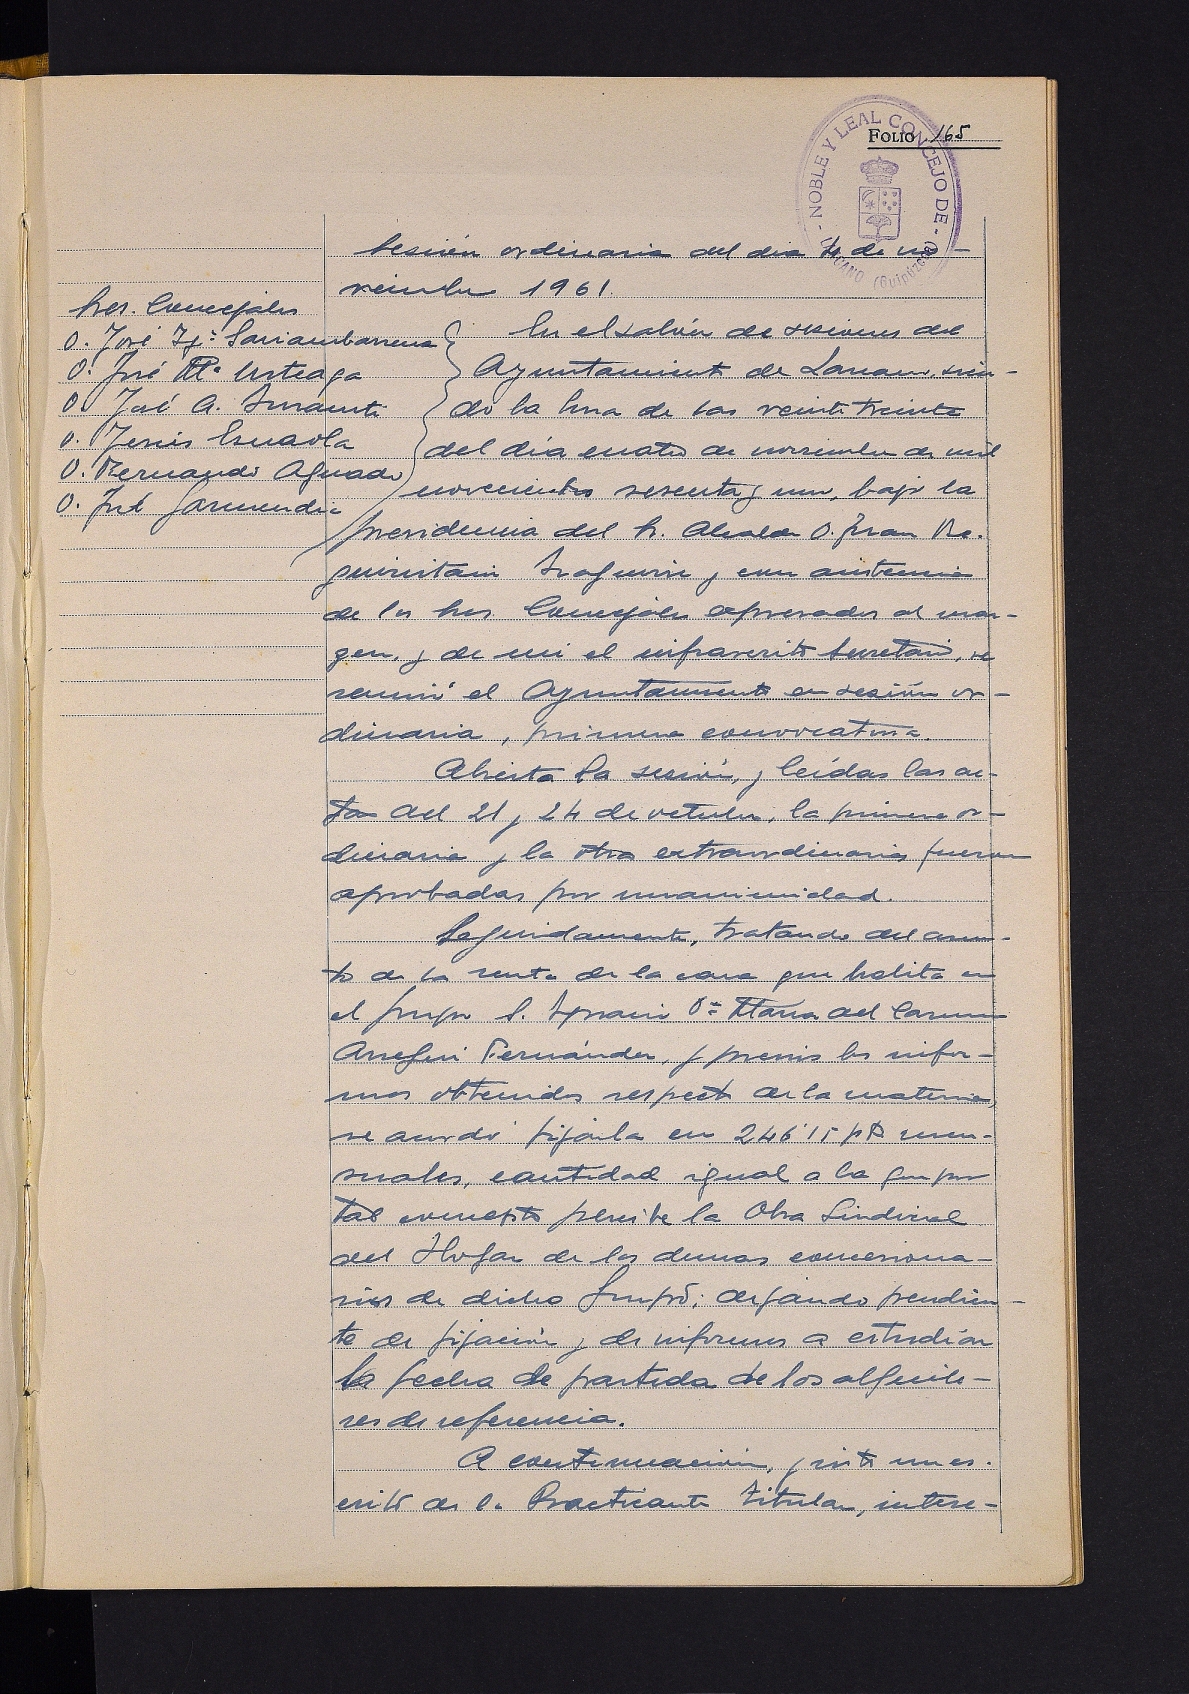 FOLIO 165
- NOBLE Y LEAL CONCEJO DE -
LAZCANO (Guipúzcoa)
Sesión ordinaria del dia 4 de no-
viembre 1961.
Sres. Concejales
D. José Igº
D. José Mª Urteaga
D. José A.
D. Jesús
D. Fernando Aguado
D. José Garmendia
En el salón de sesiones del
Ayuntamiento de Lazcano, sien-
do la hora de las veinte treinta
del día cuatro de noviembre de mil
novecientos sesenta y uno, bajo la
presidencia del Sr. Alcalde D. Juan Be-
guiristain y con asistencia
de los Sres. Concejales expresados al mar-
gen, y de mi el infrascrito Secretario, se
reunió el Ayuntamiento en sesión or-
dinaria, primera convocatoria.
Abierta la sesión, y leídas las ac-
tas del 21 y 24 de octubre, la primera or-
dinaria y la otra extraordinaria fueron
aprobadas por unanimidad.
Seguidamente, tratando del asun-
to de la renta de la casa que habita en
el grupo S. Ignacio Dª Maria del Carmen
Arregui Fernández, y previos los infor-
mes obtenidos respecto de la materia,
se acordó fijarla en 246'15 pts men-
suales, cantidad igual a la que por
tal concepto percibe la Obra Sindical
del Hogar de los demas concesiona-
rios de dicho Grupo; dejando pendien-
te de fijación y de informes a estudiar
la fecha de partida de los alquile-
res de referencia.
A continuación, visto un es-
crito de D. Practicante Titular, intere-